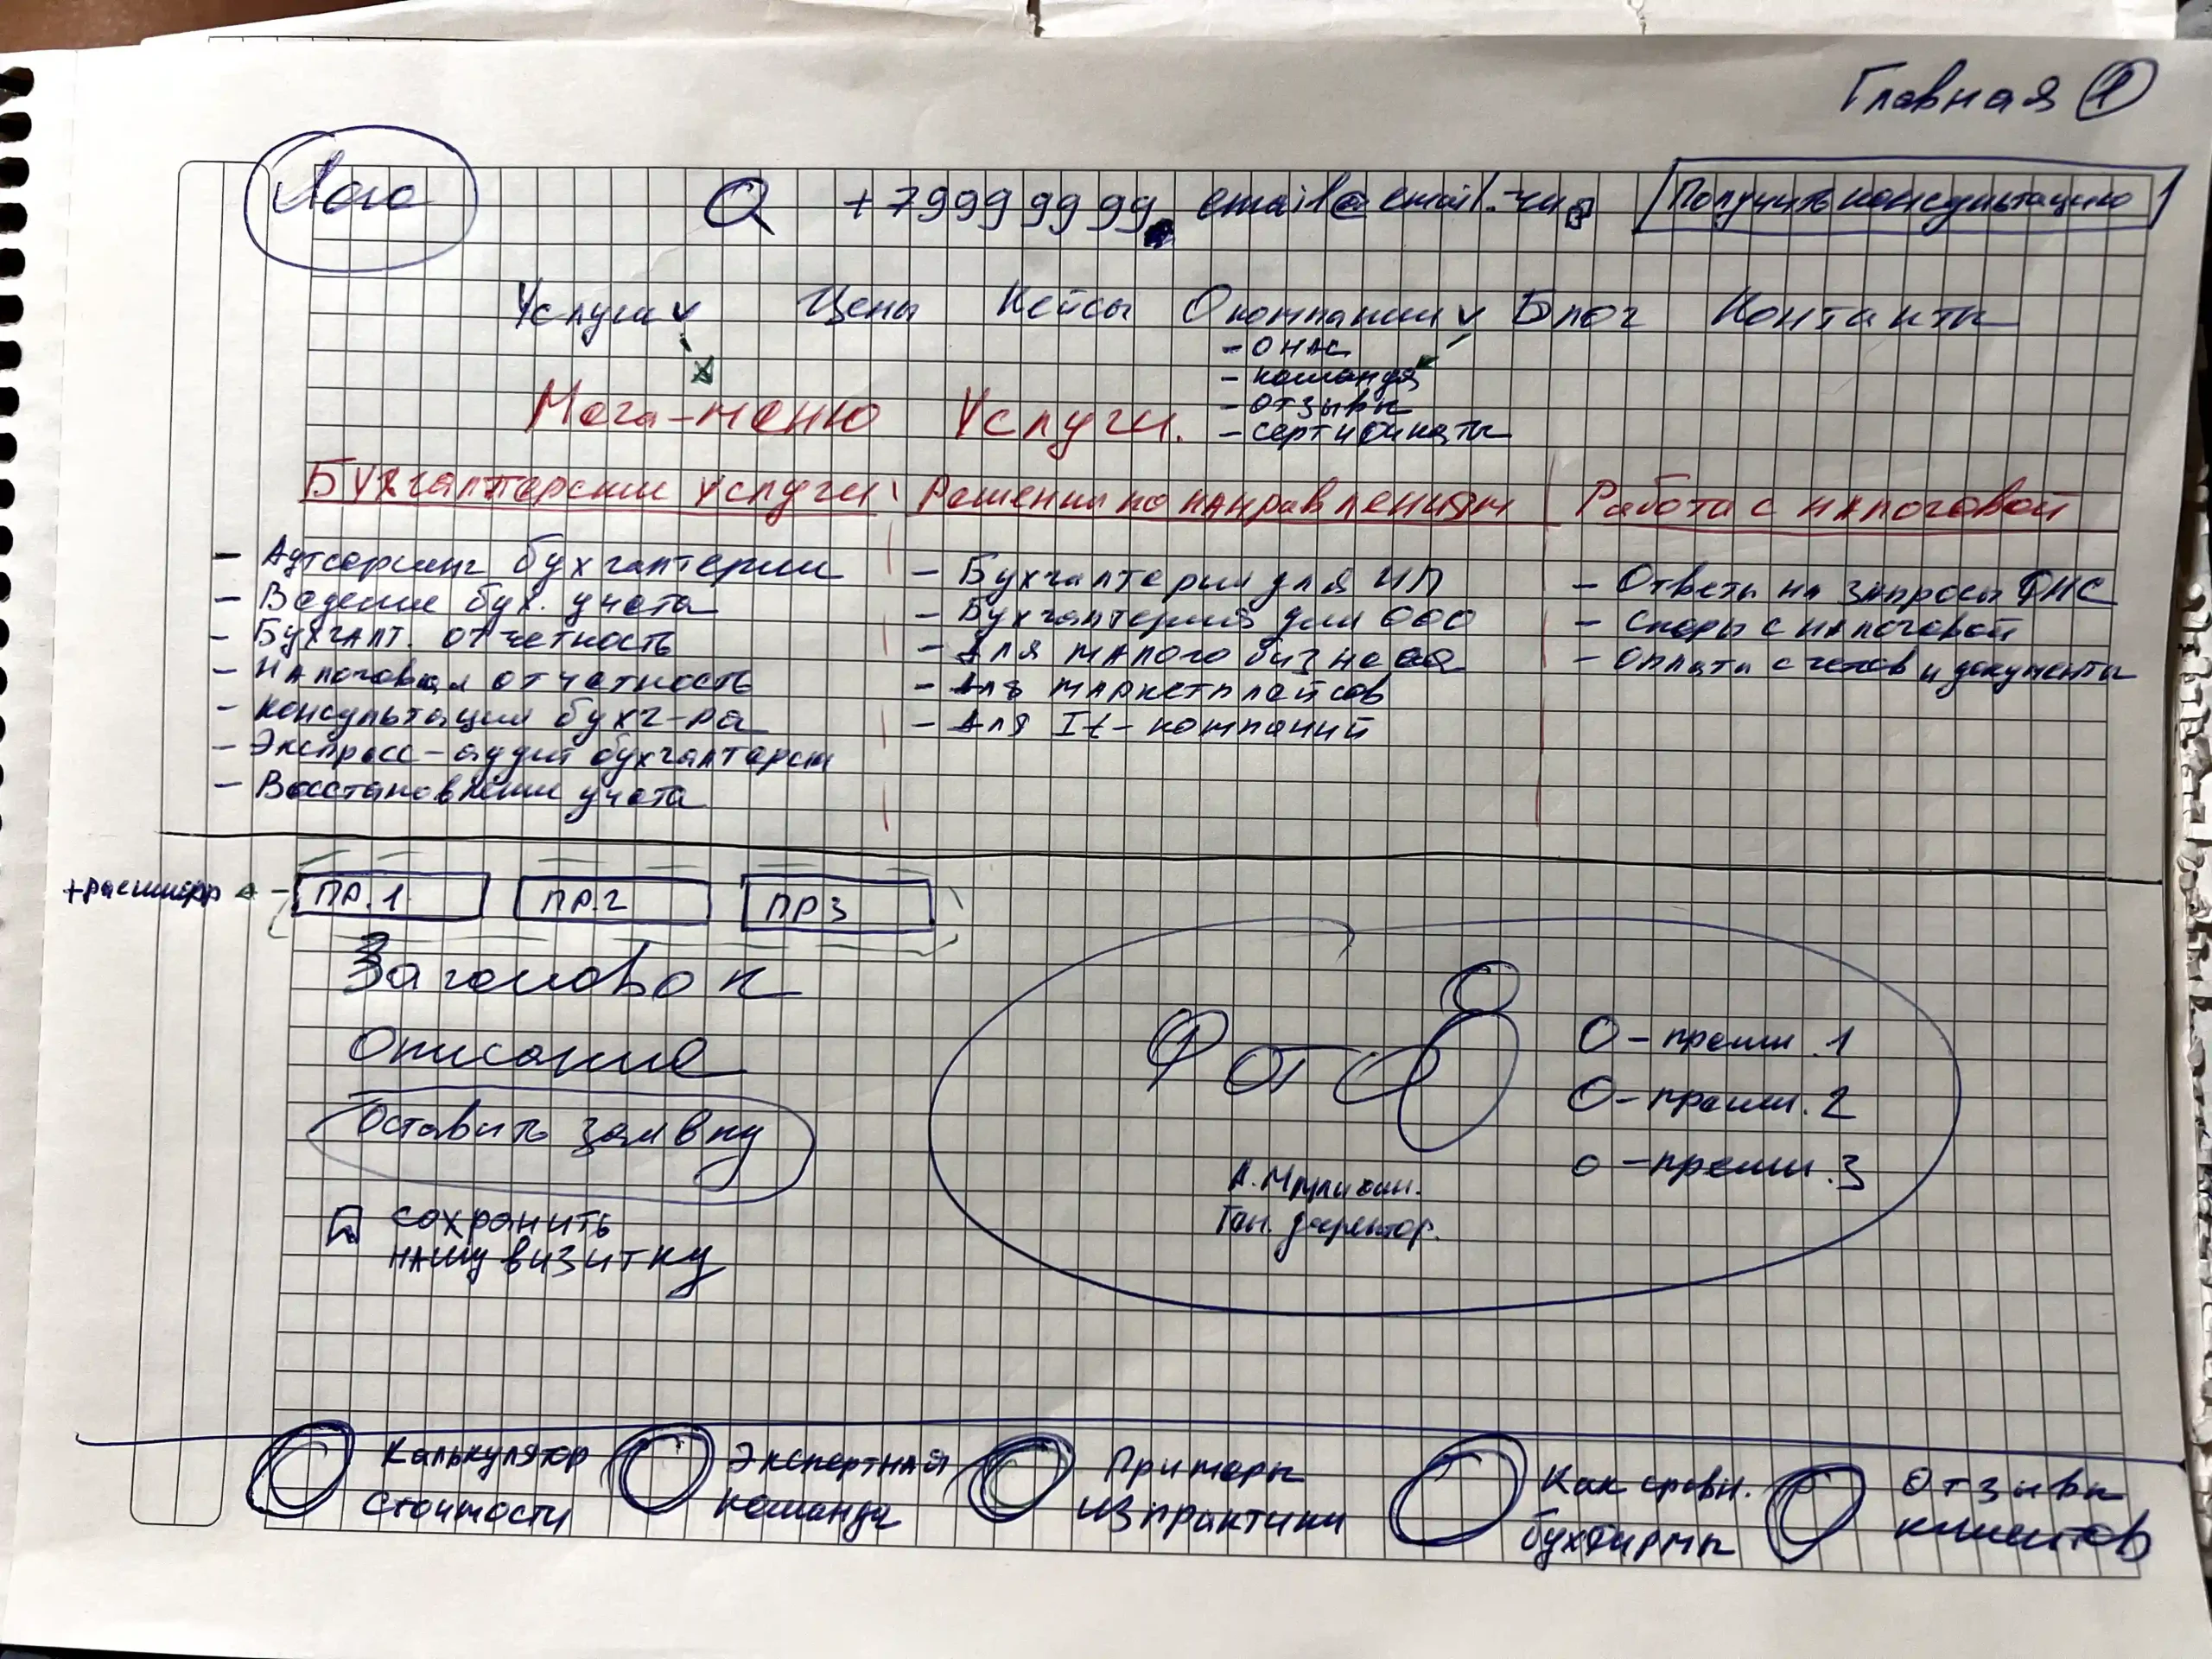 Главная 1
Лого +79999999 email@email.ru Получить консультацию
Услуги Цены Кейсы О компании Блог Контакты
- О НАС
- команда
- отзывы
- сертификаты
Мега-меню Услуги.
Бухгалтерские услуги Решения по направлениям Работа с налоговой
- Аутсорсинг бухгалтерии
- Ведение бух. учета
- Бухгалт. отчетность
- Налоговая отчетность
- консультации бухг-ра
- Экспресс-аудит бухгалтерии
- Восстановление учета
- Бухгалтерия для ИП
- Бухгалтерия для ООО
- Для малого бизнеса
- Для маркетплейсов
- Для It-компаний
- Ответы на запросы ФНС
- Споры с налоговой
- Оплата счетов и документы
ПР.1 ПР.2 ПР3
Заголовок
Описание
Оставить заявку
сохранить
нашу визитку
Фото
О - преим.1
О - преим.2
О - преим.3
Ген. директор.
Калькулятор
стоимости
Экспертная
команда
Примеры
из практики
Как сравн.
бухфирмы
Отзывы
клиентов